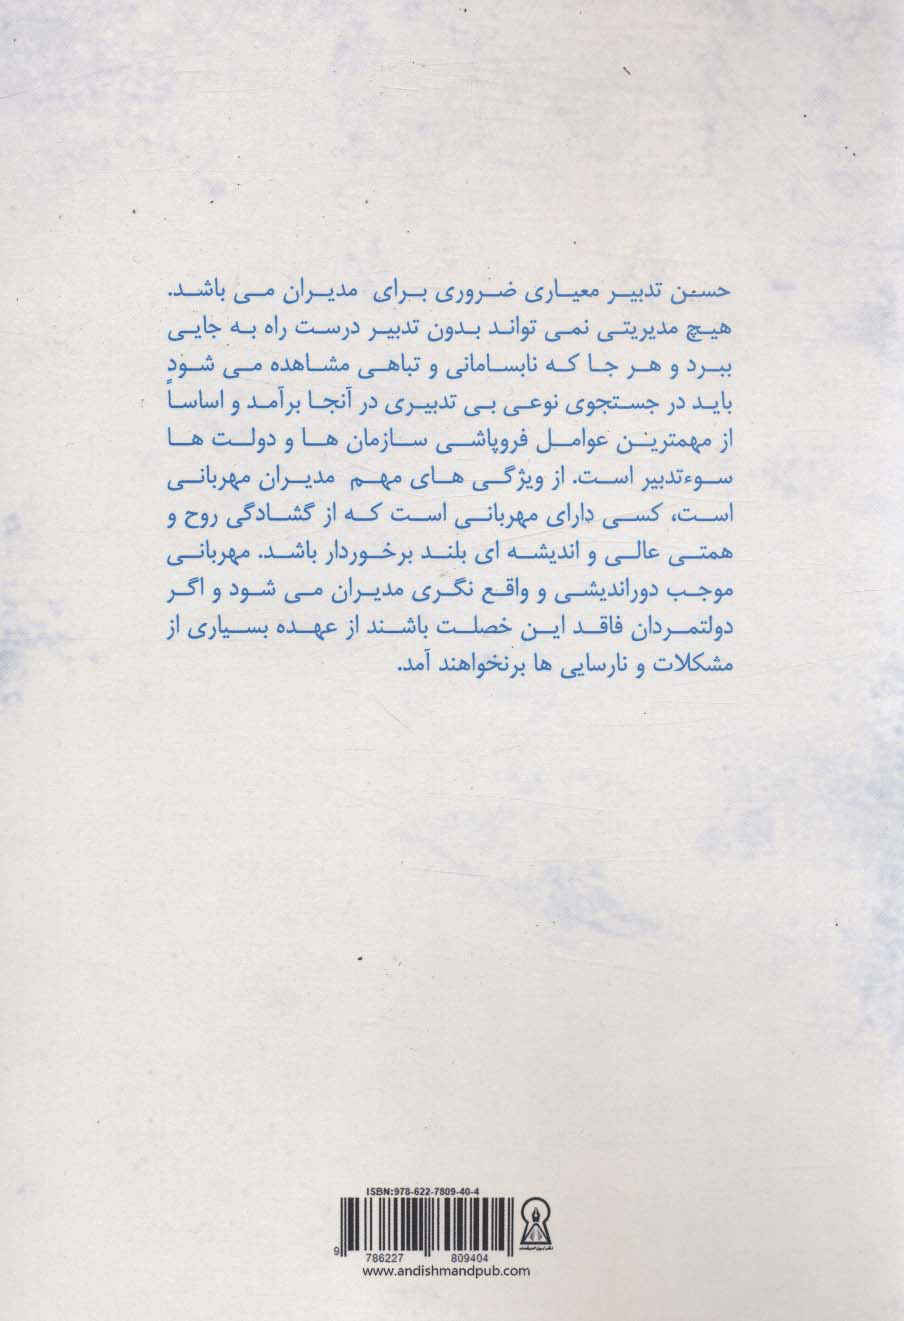 حسن تدبیر معیاری ضروری برای مدیران می باشد.
هیچ مدیریتی نمی تواند بدون تدبیر درست راه به جایی
ببرد و هر جا که نابسامانی و تباهی مشاهده می شود
باید در جستجوی نوعی بی تدبیری در آنجا برآمد و اساساً
از مهمترین عوامل فروپاشی سازمان ها و دولت ها
سوءتدبیر است. از ویژگی های مهم مدیران مهربانی
است، کسی دارای مهربانی است که از گشادگی روح و
همتی عالی و اندیشه ای بلند برخوردار باشد. مهربانی
موجب دوراندیشی و واقع نگری مدیران می شود و اگر
دولتمردان فاقد این خصلت باشند از عهده بسیاری از
مشکلات و نارسایی ها برنخواهند آمد.
ISBN:978-622-7809-40-4
9 786227 809404
www.andishmandpub.com